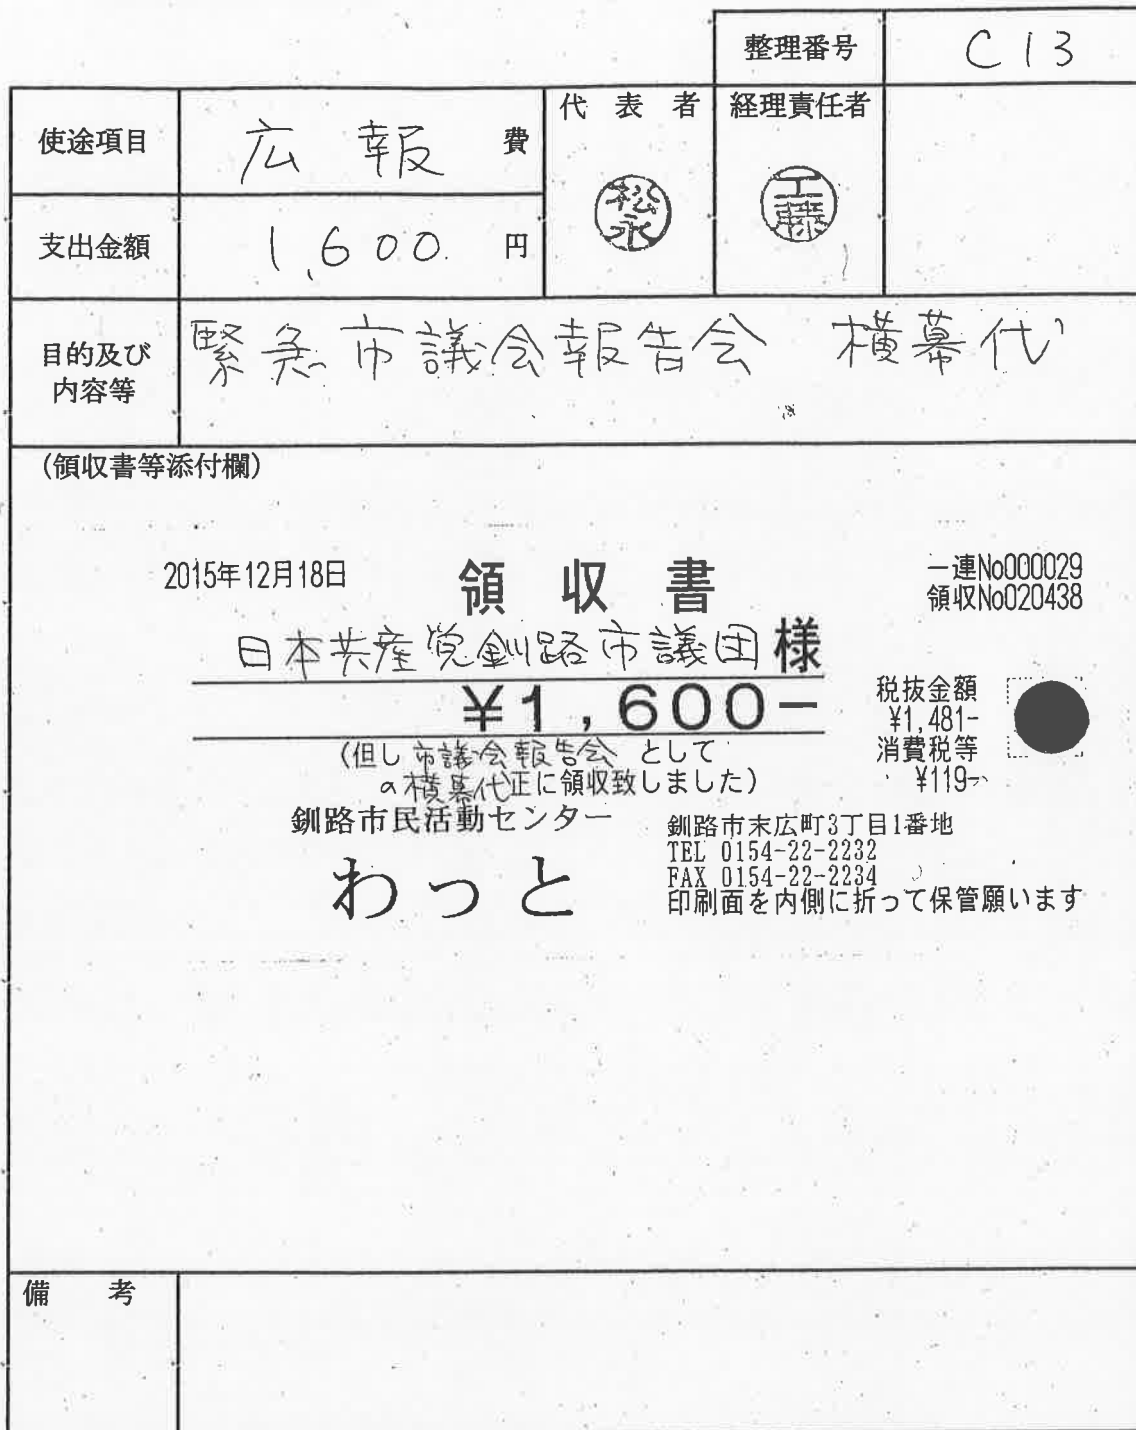 整理番号 C13
使途項目 広報 費
代表者 経理責任者
松永 工藤
支出金額 1,600 円
目的及び内容等 緊急市議会報告会 横幕代
(領収書等添付欄)
2015年12月18日 領収書 一連No000029
領収No020438
日本共産党釧路市議団様
¥1,600-
税抜金額
¥1,481-
消費税等
¥119-
(但し市議会報告会 として
の横幕代正に領収致しました)
釧路市民活動センター
わっと
釧路市末広町3丁目1番地
TEL 0154-22-2232
FAX 0154-22-2234
印刷面を内側に折って保管願います
備考